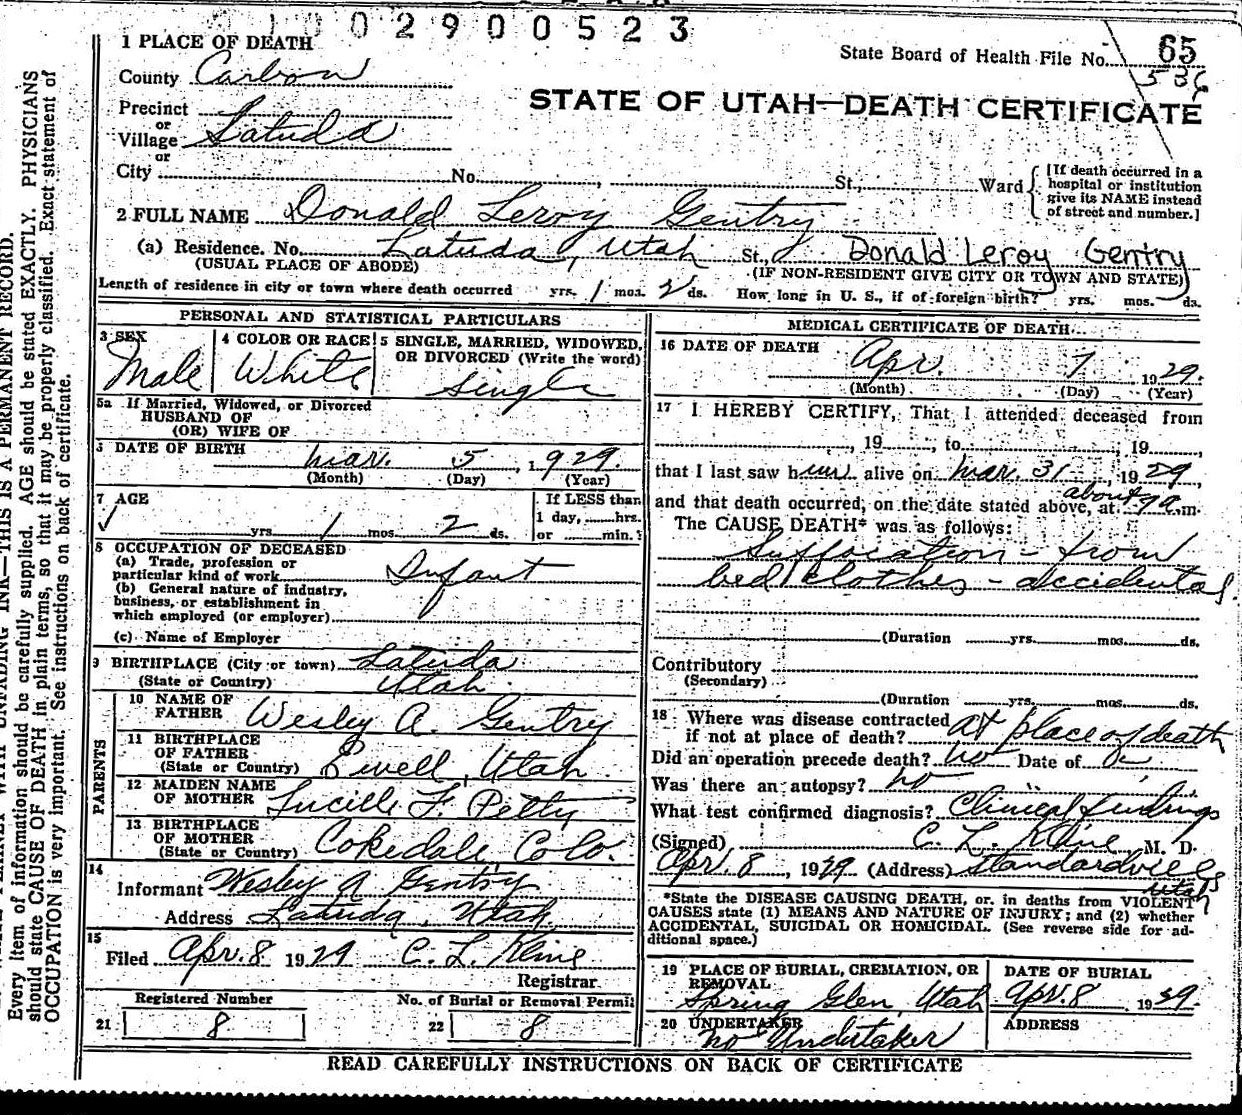 002900523
1 PLACE OF DEATH
State Board of Health File No. 65
536
County Carbon
STATE OF UTAH—DEATH CERTIFICATE
Precinct
or
Village Latuda
or
City No. , St., Ward
[If death occurred in a hospital or institution give its NAME instead of street and number.]
2 FULL NAME Donald Leroy Gentry
(a) Residence. No. Latuda, Utah St., Donald Leroy Gentry
(USUAL PLACE OF ABODE) (IF NON-RESIDENT GIVE CITY OR TOWN AND STATE)
Length of residence in city or town where death occurred yrs. 1 mos. 2 ds. How long in U. S., if of foreign birth? yrs. mos. ds.
PERSONAL AND STATISTICAL PARTICULARS
3 SEX Male
4 COLOR OR RACE White
5 SINGLE, MARRIED, WIDOWED, OR DIVORCED (Write the word)
Single
5a If Married, Widowed, or Divorced
HUSBAND OF
(OR) WIFE OF
DATE OF BIRTH Mar. 5, 1929.
(Month) (Day) (Year)
7 AGE
yrs. 1 mos. 2 ds.
If LESS than
1 day, hrs.
or min.
8 OCCUPATION OF DECEASED
(a) Trade, profession or
particular kind of work Infant
(b) General nature of industry,
business, or establishment in
which employed (or employer)
(c) Name of Employer
9 BIRTHPLACE (City or town) Latuda
(State or Country) Utah.
PARENTS
10 NAME OF
FATHER Wesley A. Gentry
11 BIRTHPLACE
OF FATHER
(State or Country) , Utah
12 MAIDEN NAME
OF MOTHER Lucille F. Petty
13 BIRTHPLACE
OF MOTHER
(State or Country) Cokedale, Colo.
14
Informant Wesley A Gentry
Address Latuda, Utah
15
Filed Apr. 8 1929 C. L. Kline
Registrar
Registered Number
21 8
No. of Burial or Removal Permit
22 8
MEDICAL CERTIFICATE OF DEATH
16 DATE OF DEATH
Apr. 7 1929.
(Month) (Day) (Year)
17 I HEREBY CERTIFY, That I attended deceased from
, 19 , to , 19 ,
that I last saw him alive on Mar. 31, 1929,
and that death occurred, on the date stated above, at about 7 a.m.
The CAUSE DEATH* was as follows:
Suffocation - from
bed clothes - accidental.
(Duration yrs. mos. ds.
Contributory
(Secondary)
(Duration yrs. mos. ds.
18 Where was disease contracted
if not at place of death? at place of death
Did an operation precede death? No Date of
Was there an autopsy? no
What test confirmed diagnosis? Clinical findings
(Signed) C. L. Kline, M. D.
Apr. 8, 1929 (Address) Standardville
Utah
*State the DISEASE CAUSING DEATH, or, in deaths from VIOLENT
CAUSES state (1) MEANS AND NATURE OF INJURY; and (2) whether
ACCIDENTAL, SUICIDAL OR HOMICIDAL. (See reverse side for ad-
ditional space.)
19 PLACE OF BURIAL, CREMATION, OR
REMOVAL
Spring Glen, Utah
DATE OF BURIAL
Apr. 8 1929.
20 UNDERTAKER
No Undertaker
ADDRESS
READ CAREFULLY INSTRUCTIONS ON BACK OF CERTIFICATE
THIS IS A PERMANENT RECORD.
Every item of information should be carefully supplied. AGE should be stated EXACTLY. PHYSICIANS
should state CAUSE OF DEATH in plain terms, so that it may be properly classified. Exact statement of
OCCUPATION is very important. See instructions on back of certificate.